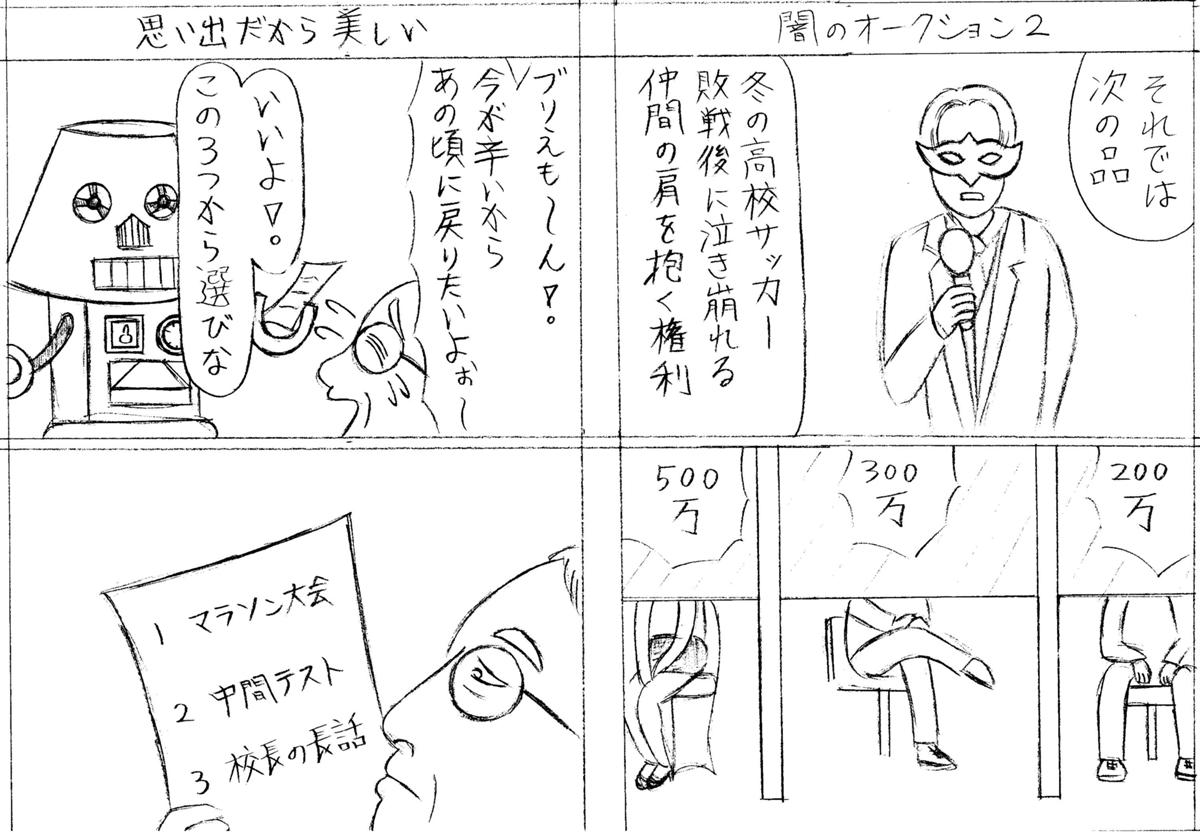 闇のオークション2
それでは
次の品
冬の高校サッカー
敗戦後に泣き崩れる
仲間の肩を抱く権利
200
万
300
万
500
万
思い出だから美しい
ブリえも〜ん!。
今が辛いから
あの頃に戻りたいよぉ〜
いいよ!。
この3つから選びな
1 マラソン大会
2 中間テスト
3 校長の長話